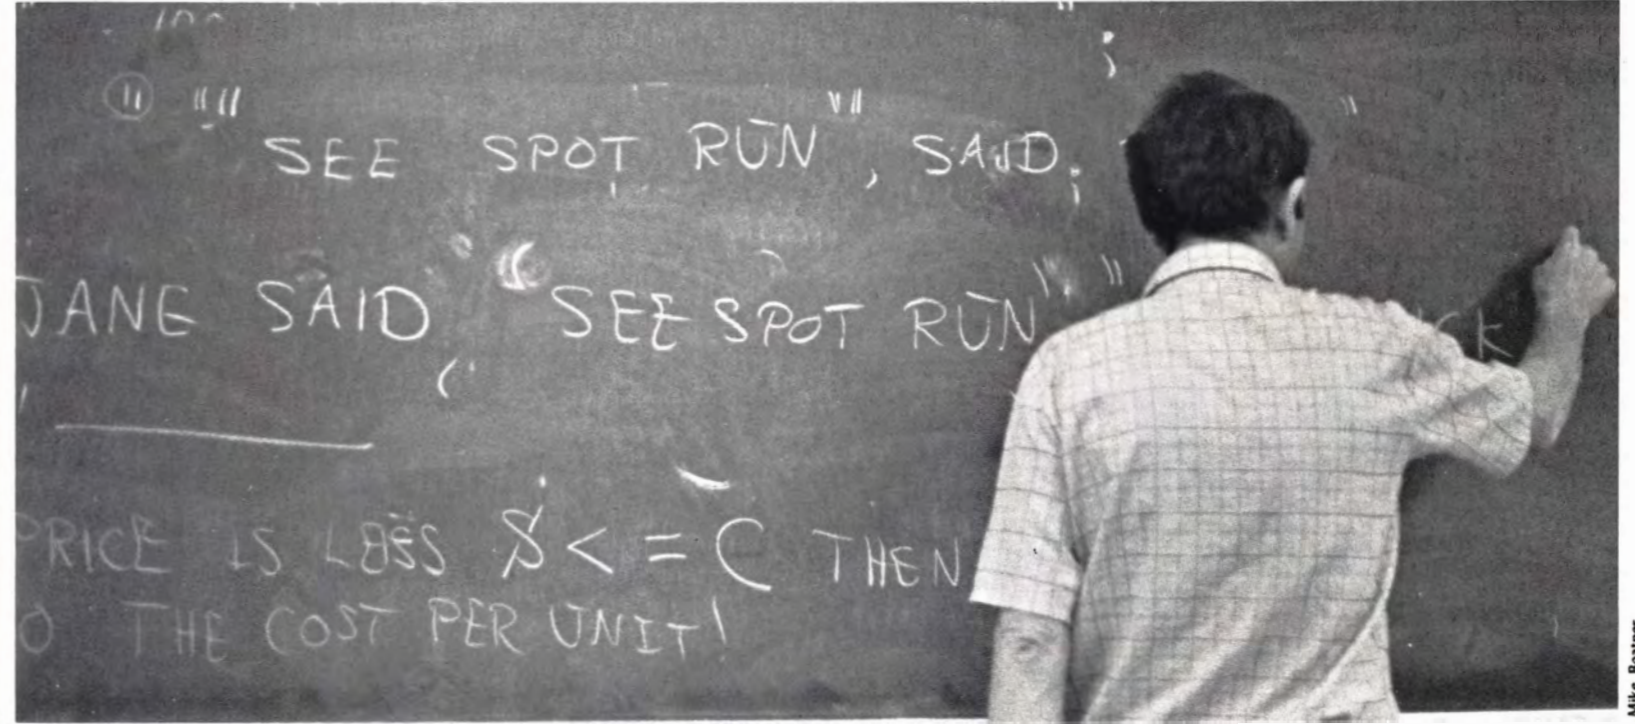 (") """
SEE SPOT RUN"", SAID;
JANE SAID, "SEE SPOT RUN" "
PRICE IS LESS S < = C THEN
O THE COST PER UNIT'